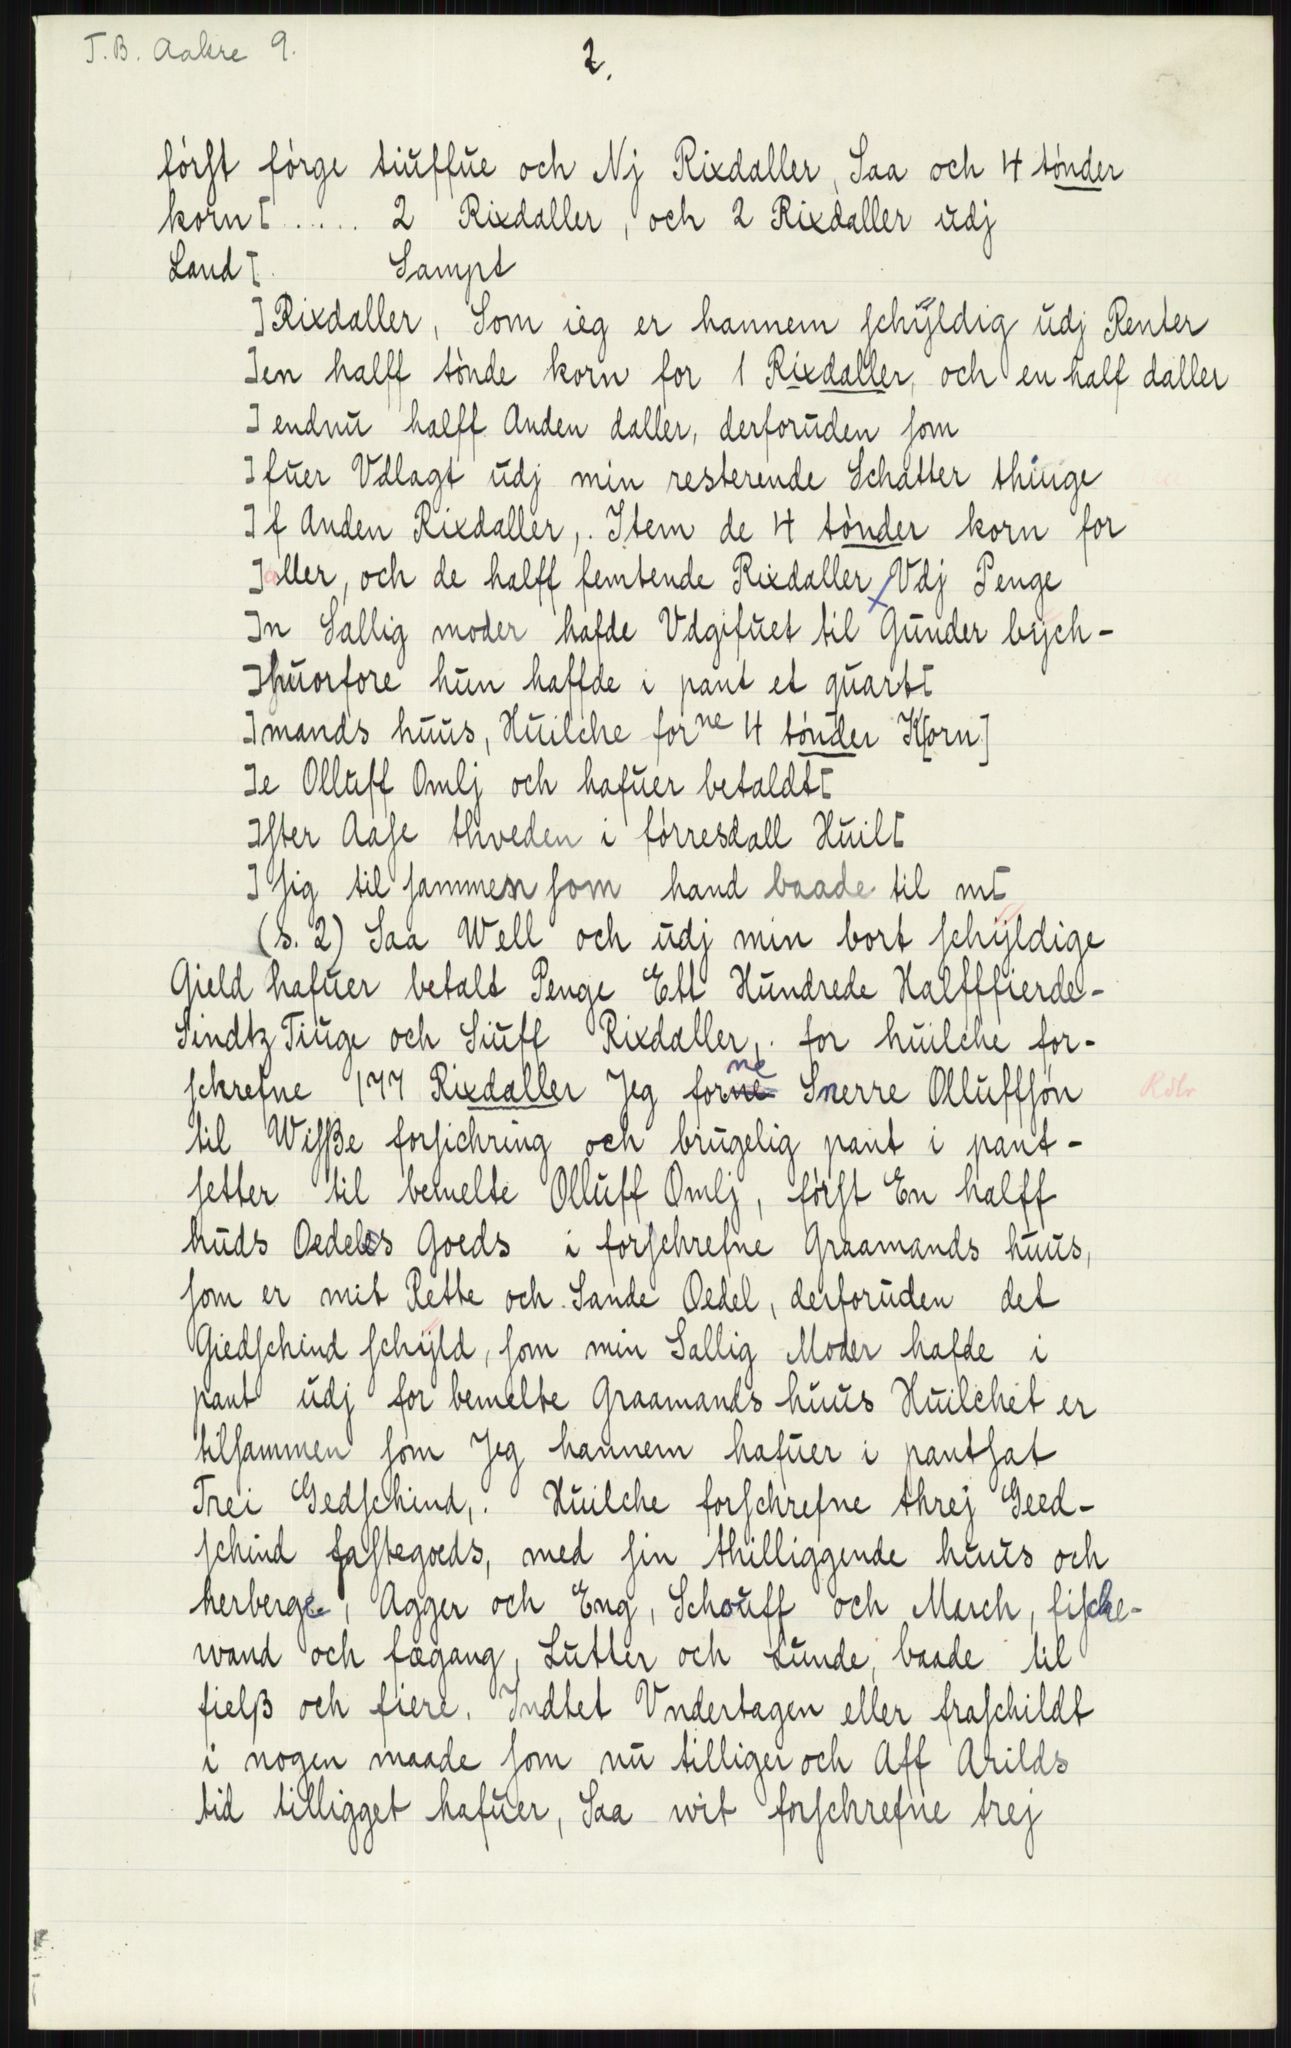 T.B. Aakre 9.
2.
först förge tiuffue och Nj Rixdaller, Saa och 4 tönder
korn[ ..... 2 Rixdaller, och 2 Rixdaller udj
Land[. Sampt
]Rixdaller, Som ieg er hannem schÿldig udj Renter
]en halff tönde korn for 1 Rixdaller, och en half daller
] endnu halff Anden daller, derforuden som
]fuer Vdlagt udj min resterende Schatter thiuge
]f Anden Rixdaller,. Item de 4 tönder korn for
]aller, och de halff femtende Rixdaller Vdj Penge
]n Sallig moder hafde Vdgifuet til Gunder bÿch-
]huorfore hun haffde i pant et quart[
]mands huus, Huilche forne 4 tönder K[orn]
]e Olluff Omlj och hafuer betaldt[
]fter Aase thveden i förresdall Huil[
] sig til sammen som hand baade til m[
(s. 2) Saa Well och udj min bort schÿldige
Gield hafuer betalt Penge Ett Hundrede Halfffierde-
Sindtz Tiuge och Siuff Rixdaller,. for huilche for-
schrefne 177 Rixdaller Jeg forne Snerre Olluffsön Rdlr
til Wisße forsichring och brugelig pant i pant-
setter til bemelte Olluff Omlj, först En halff
huds Oedels Goeds i forschrefne Graamands huus,
som er mit Rette och Sande Oedel, derforuden det
Giedschind schÿld, som min Sallig Moder hafde i
pant udj for bemelte Graamands huus Huilchet er
tilsammen som Jeg hannem hafuer i pantsat
Trei Gedschind,. Huilche forschrefne threj Geed-
schind fastegoeds, med sin thilliggende huus och
herberge, Agger och Eng, Schouff och March, fische-
wand och fægang, Lutter och Lunde, baade til
fielß och fiere. Indtet Vndertagen eller fraschildt
i nogen maade som nu tilliger och Aff Arilds
tid tilligget hafuer, Saa wit forschrefne trej